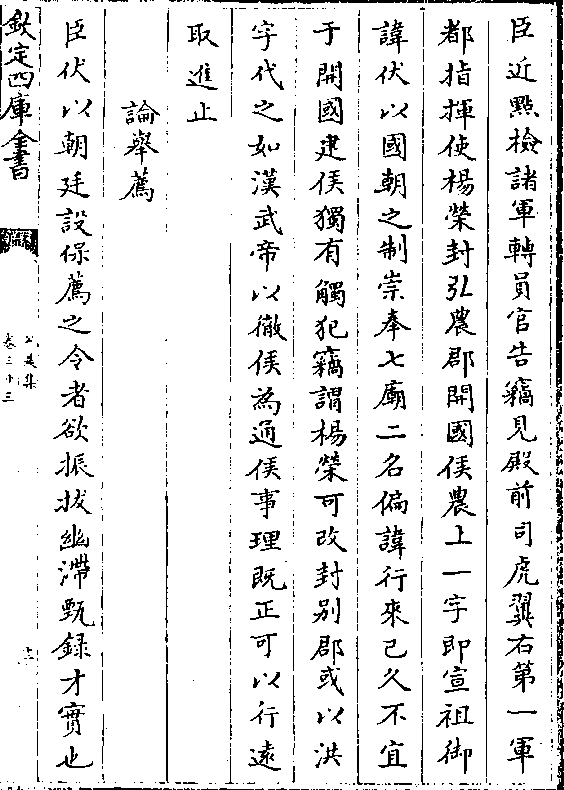 臣近㸃檢諸軍轉員官告竊見殿前司虎翼右第一軍
都指揮使楊榮封弘農郡開國侯農上一字即宣祖御
諱伏以國朝之制崇奉七廟二名偏諱行來已久不宜
于開國建侯獨有觸犯竊謂楊榮可改封别郡或以洪
字代之如漢武帝以徹侯為通侯事理既正可以行遠
取進止
論舉薦
臣伏以朝廷設保薦之令者欲振拔幽滯甄録才實也
欽定四庫全書
公是集
卷三十三
十二